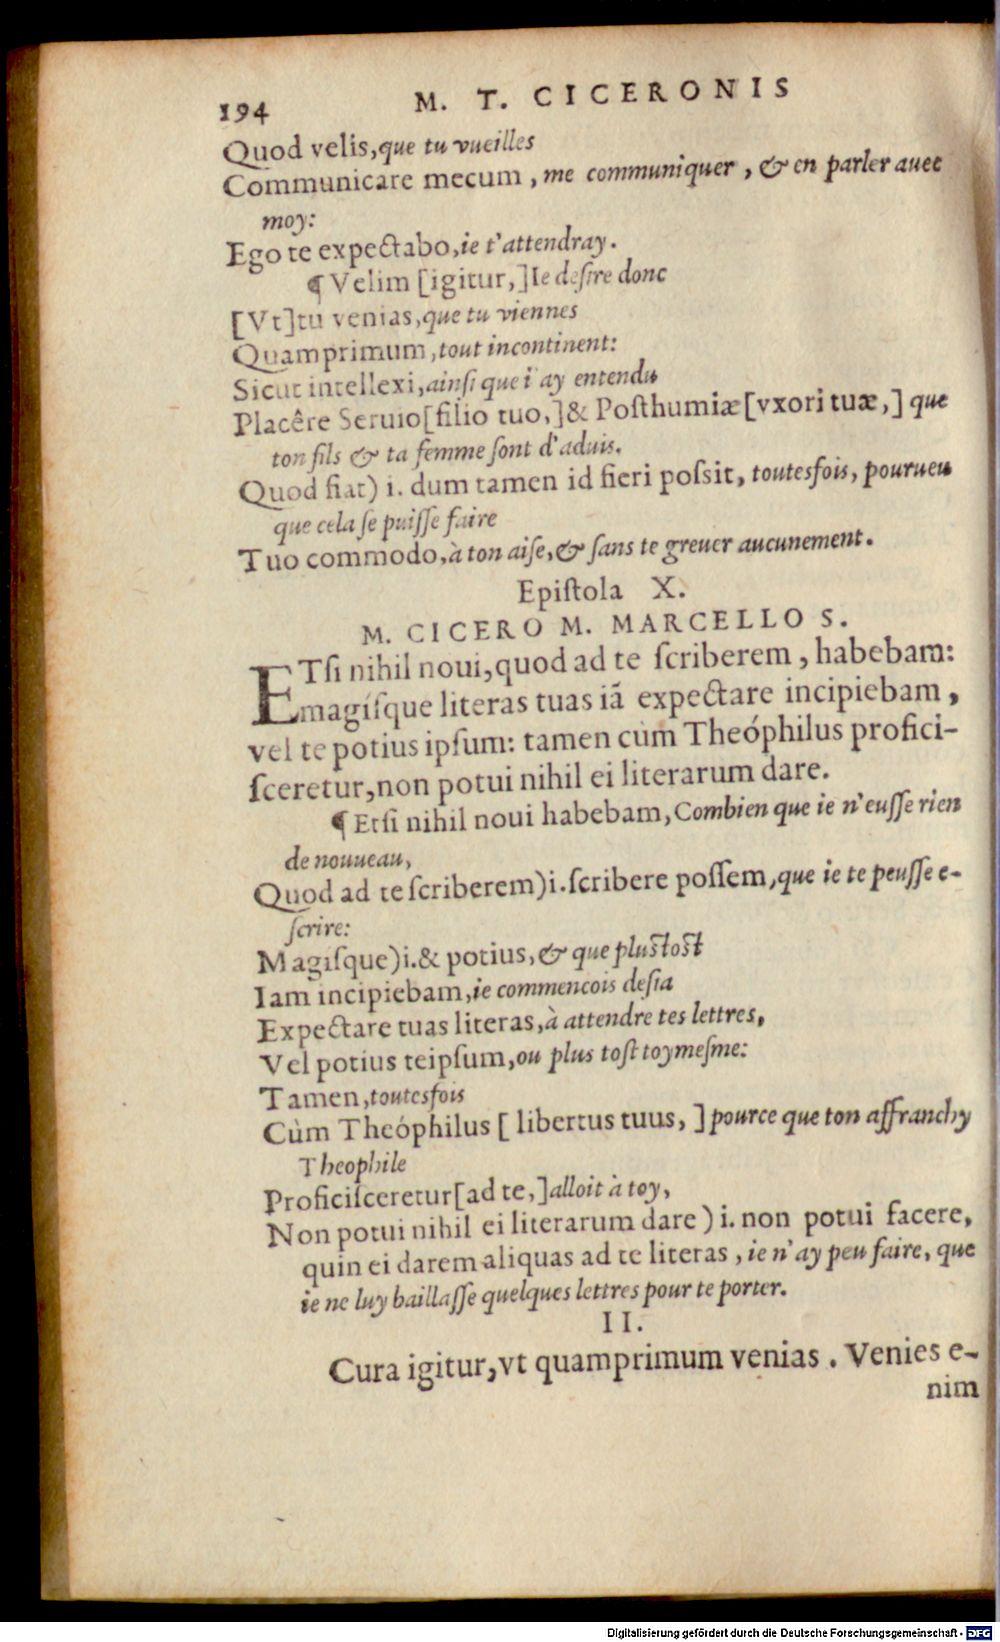 194 M. T. CICERONIS
Quod velis, que tu vueilles
Communicare mecum, me communiquer, & en parler auec
moy:
Ego te expectabo, ie t'attendray.
¶ Velim [igitur,] Ie desire donc
[Vt] tu venias, que tu viennes
Quamprimum, tout incontinent:
Sicut intellexi, ainsi que i'ay entendu
Placêre Seruio [filio tuo,] & Posthumiæ [vxori tuæ,] que
ton fils & ta femme sont d'aduis.
Quod fiat) i. dum tamen id fieri possit, toutesfois, pourueu
que cela se puisse faire
Tuo commodo, à ton aise, & sans te greuer aucunement.
Epistola X.
M. CICERO M. MARCELLO S.
ETsi nihil noui, quod ad te scriberem, habebam:
magísque literas tuas iã expectare incipiebam,
vel te potius ipsum: tamen cùm Theóphilus profici-
sceretur, non potui nihil ei literarum dare.
¶ Etsi nihil noui habebam, Combien que ie n'eusse rien
de nouueau,
Quod ad te scriberem) i. scribere possem, que ie te peusse e-
scrire:
Magisque) i. & potius, & que plustost
Iam incipiebam, ie commencois desia
Expectare tuas literas, à attendre tes lettres,
Vel potius teipsum, ou plus tost toymesme:
Tamen, toutesfois
Cùm Theóphilus [libertus tuus,] pource que ton affranchy
Theophile
Proficisceretur [ad te,] alloit à toy,
Non potui nihil ei literarum dare) i. non potui facere,
quin ei darem aliquas ad te literas, ie n'ay peu faire, que
ie ne luy baillasse quelques lettres pour te porter.
II.
Cura igitur, vt quamprimum venias. Venies e-
nim
Digitalisierung gefördert durch die Deutsche Forschungsgemeinschaft - DFG